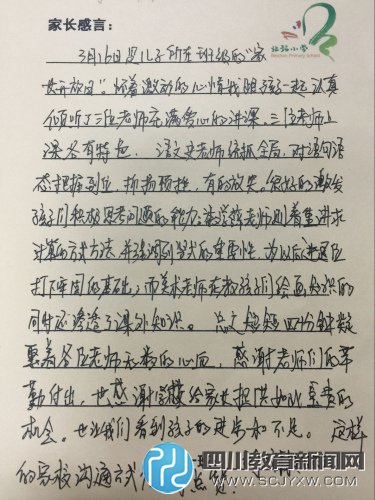 北站小学
Beizhan Primary school
家长感言:
3月16日是儿子所在班级的“家
长开放日”。怀着激动的心情我跟孩子一起认真
倾听了三位老师充满爱心的讲课。三位老师上
课各有特色。语文史老师统抓全局,对语句语
态把握到位,抑扬顿挫,有的放矢。很好的激发
孩子们积极思考问题的能力;数学 老师则着重讲求
计算的方式方法,并强调到 式的重要性,为以后进
打下牢固的基础;而美术老师在教孩子们绘画知识的
同时还渗透了课外知识。总之短短四十分钟凝
聚着各位老师无数的心血,感谢老师们的辛
勤付出,也感谢学校给家长提供如此宝贵的
机会。也让我们看到孩子的进步和不足。这样
的家校沟通方式
四川教育新闻网
WWW.SCJYXW.COM